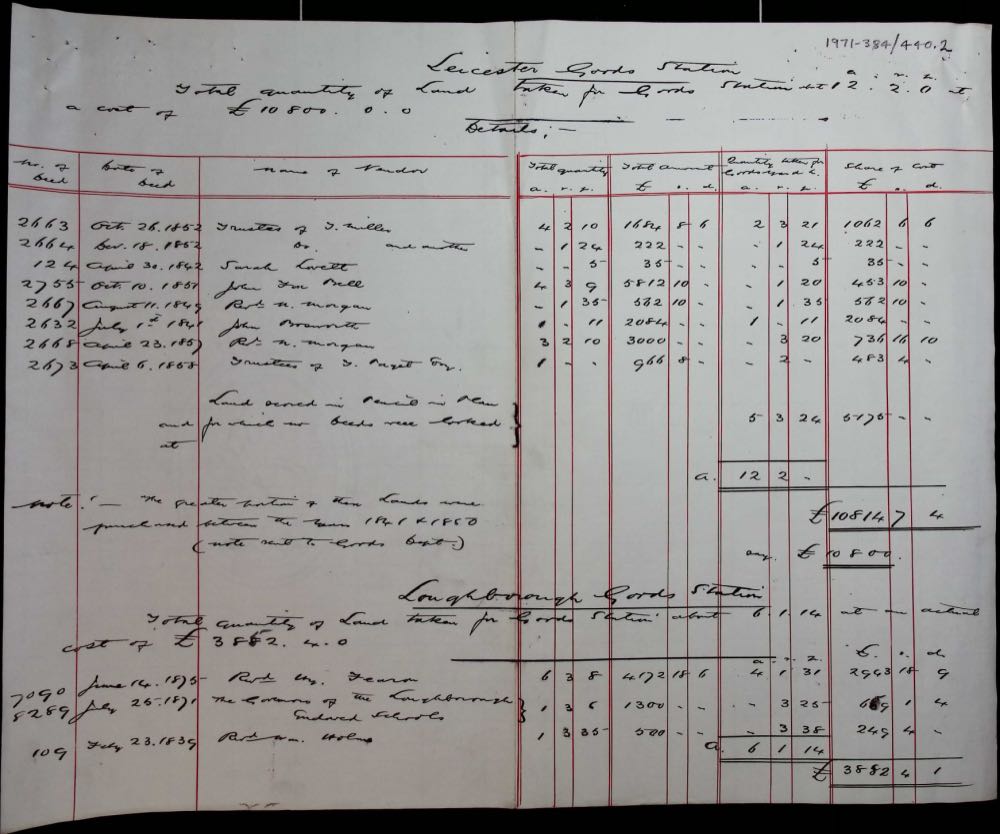 1971-384/440.2
Leicester Goods Station
a. r. p.
Total quantity of Land taken for Goods Station abt 12. 2. 0 at
a cost of £10800. 0. 0
Details;—
No. of Deed Date of Deed Name of Vendor Total quantity a. r. p. Total Amount £ s. d. Quantity taken for Goods Yard &c. a. r. p. Share of Cost £ s. d.
2663 Oct. 26. 1852 Trustees of T. Miller 4 2 10 1684 8 6 2 3 21 1062 6 6
2664 Dec. 18. 1852 Do. and another - 1 24 222 - - - 1 24 222 - -
124 April 30. 1842 Sarah Lovett - - 5 35 - - - - 5 35 - -
2755 Oct. 10. 1851 John Bell 4 3 9 5812 10 - - 1 20 453 10 -
2667 August 11. 1849 Revd. N. Morgan - 1 35 562 10 - - 1 35 562 10 -
2632 July 1st 1841 John Bosworth 1 - 11 2084 - - 1 - 11 2084 - -
2668 April 23. 1857 Rd. N. Morgan 3 2 10 3000 - - - 3 20 736 16 10
2673 April 6. 1858 Trustees of T. Paget Esq. 1 - - 966 8 - - 2 - 483 4 -
Land scored in Pencil in Plan
and for which no Deeds were looked 5 3 24 5175 - -
at
a. 12 2 -
Note:— The greater portion of these Lands were
£10814 7 4
purchased between the years 1841 & 1850
(note sent to Goods Dept.)
say £10800.
Loughborough Goods Station
Total quantity of Land taken for Goods Station about 6. 1. 14 at an actual
cost of £3882. 4. 0
a. r. p. £. s. d.
7090 June 14. 1875 Revd. Hy. Fearon 6 3 8 4172 18 6 4 1 31 2963 18 9
8289 July 25. 1871 The Governors of the Loughborough 1 3 6 1300 - - - 3 25 669 1 4
Endowed Schools
109 Feby 23. 1839 Revd. Wm. Holme 1 3 35 500 - - - 3 38 249 4 -
a. 6 1 14
£3882 4 1